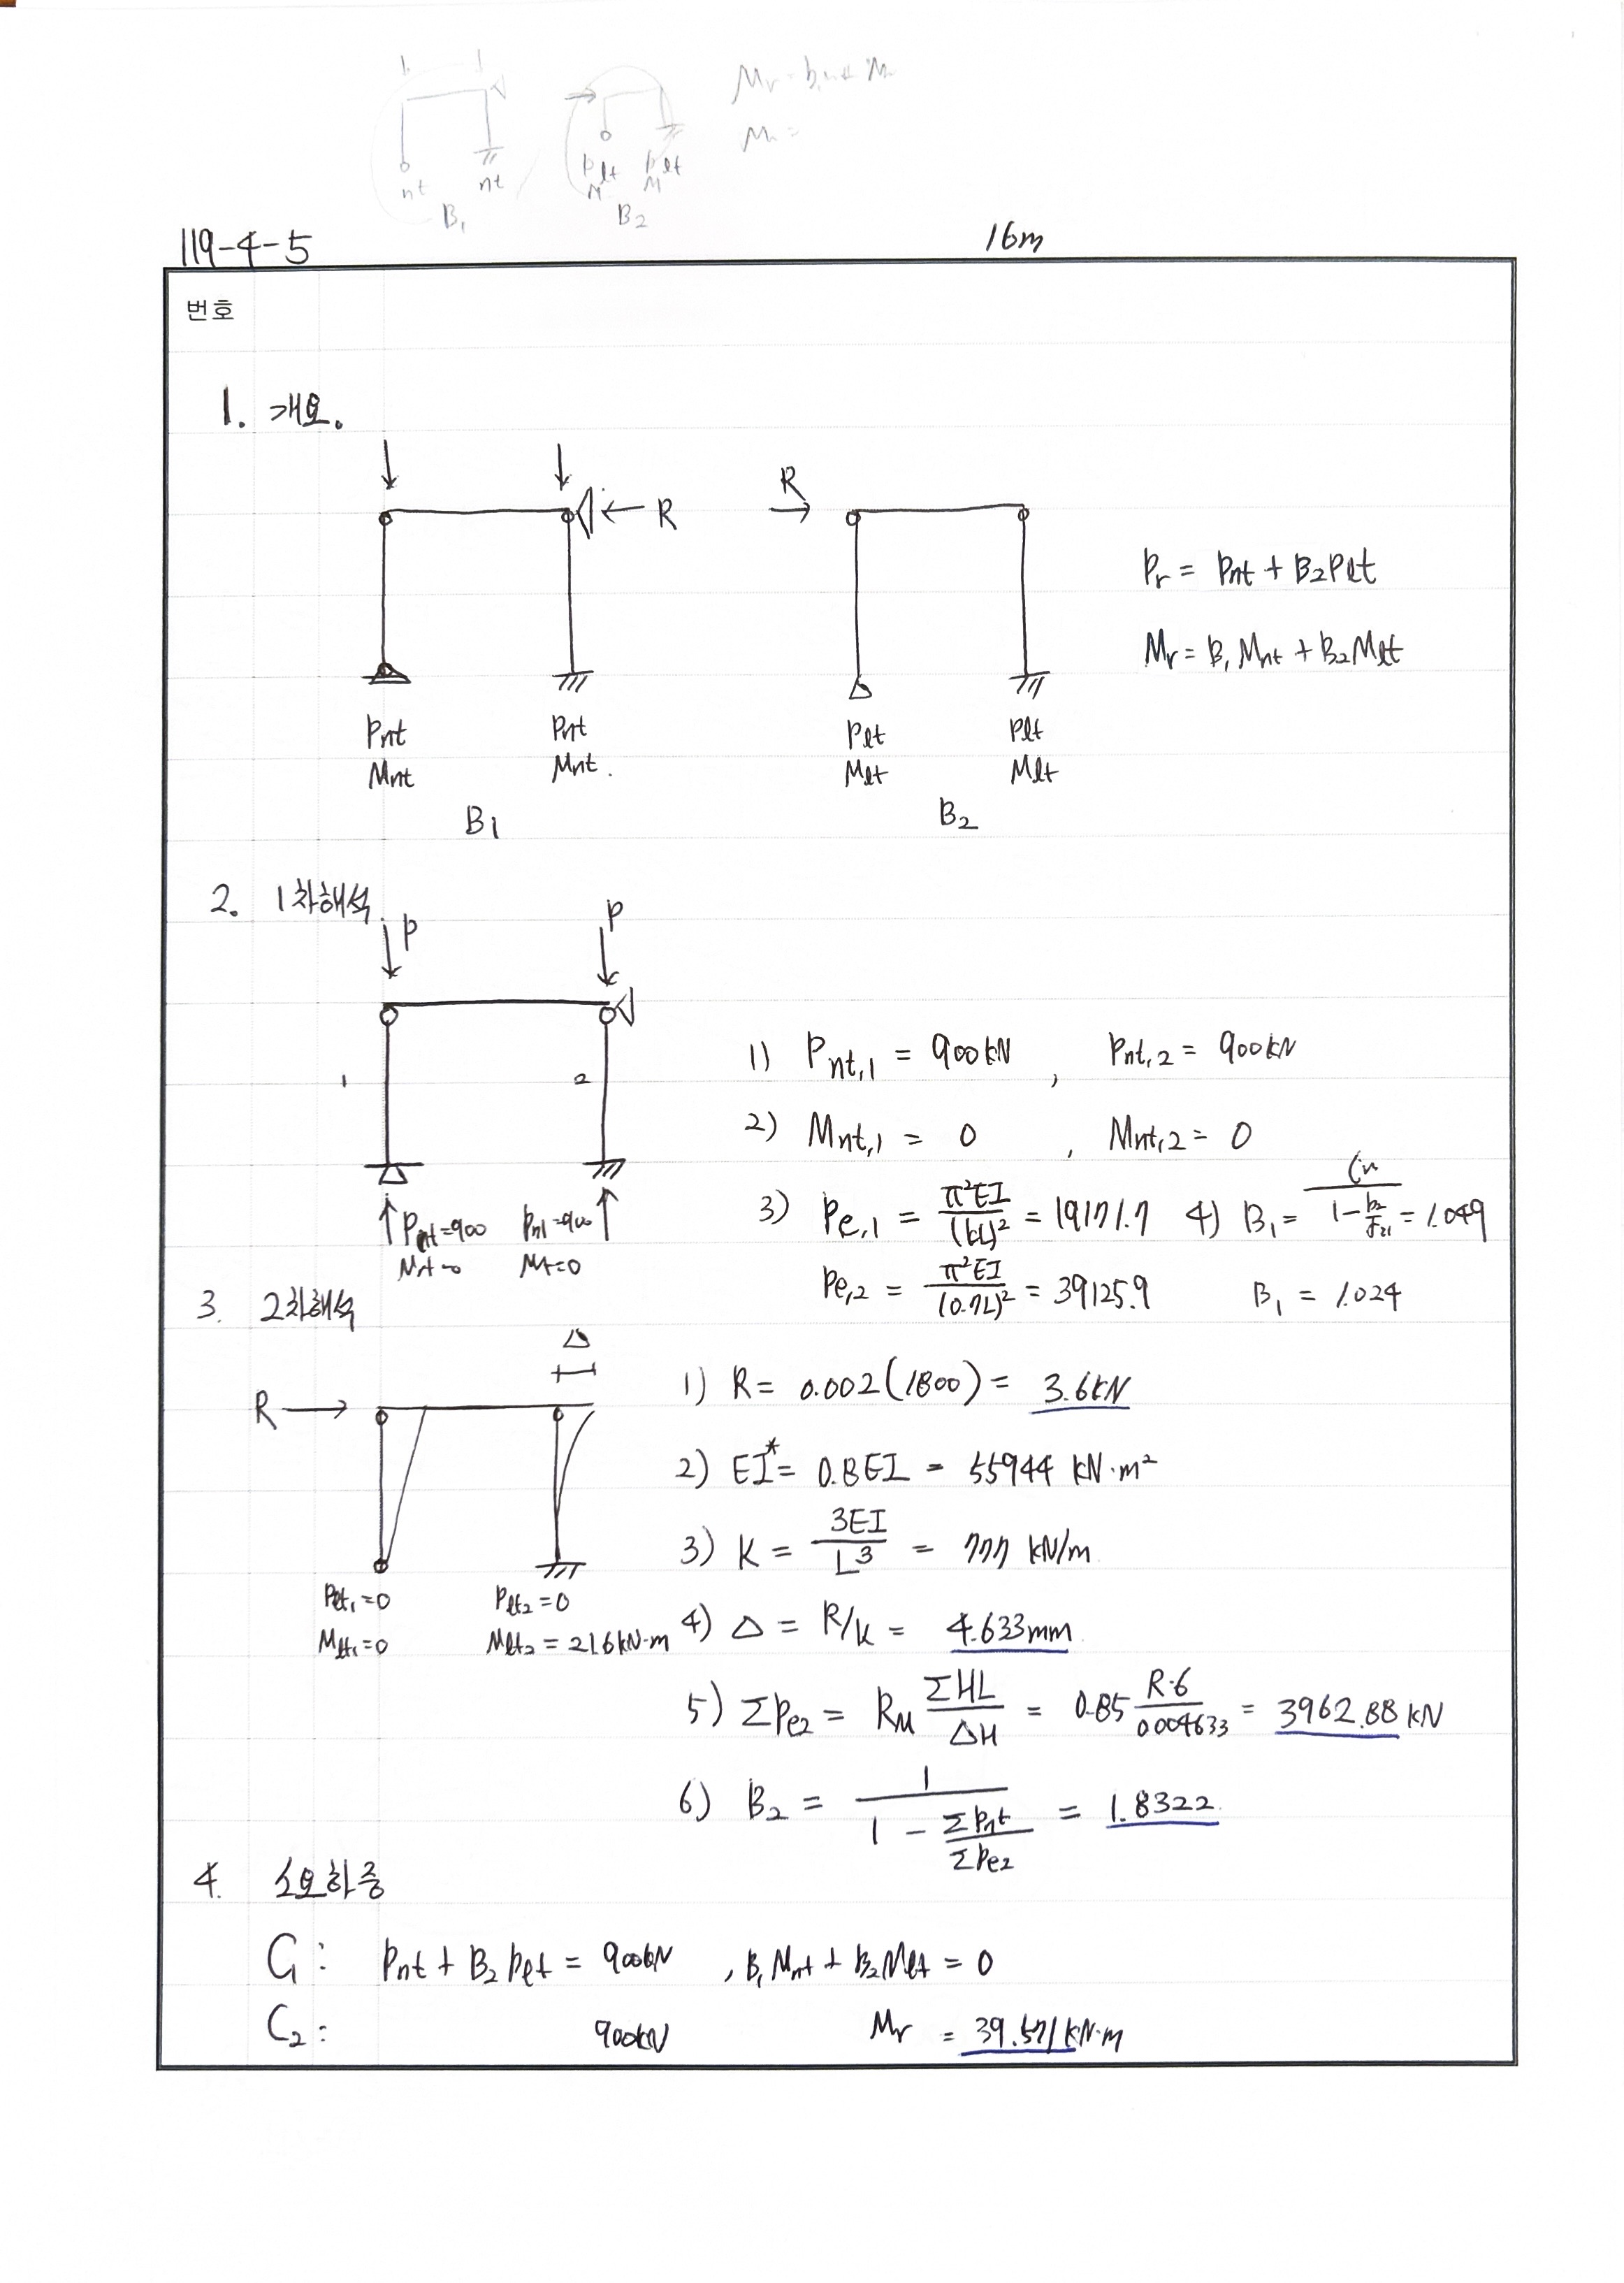 nt nt
B₁
Plt Plt
M M
B₂
Mr =
M =
119-4-5
16m
번호
1. 개요.
R
R
Pr = Pnt + B₂Plt
Mr = B₁Mnt + B₂Mlt
Pnt Pnt Plt Plt
Mnt Mnt. Mlt Mlt
B₁ B₂
2. 1차해석.
P P
1 2
1) Pnt,1 = 900kN , Pnt,2 = 900kN
2) Mnt,1 = 0 , Mnt,2 = 0
3) Pe,1 = π²EI/(kL)² = 19171.7 4) B₁ = = 1.049
Pe,2 = π²EI/(0.7L)² = 39125.9 B₁ = 1.024
Pnt=900 Pnt=900
Mnt=0 Mnt=0
3. 2차해석
R Δ
1) R = 0.002(1800) = 3.6kN
2) EI* = 0.8EI = 55944 kN·m²
3) K = 3EI/L³ = 777 kN/m
Plt₁=0 Plt₂=0
Mlt₁=0 Mlt₂ = 21.6kN·m
4) Δ = R/K = 4.633mm
5) ΣPe₂ = RM ΣHL/ΔH = 0.85 R·6/0.004633 = 3962.88 kN
6) B₂ = 1/(1 - ΣPnt/ΣPe₂) = 1.8322
4. 소요하중
C₁: Pnt + B₂Plt = 900kN , B₁Mnt + B₂Mlt = 0
C₂: 900kN Mr = 39.571kN·m